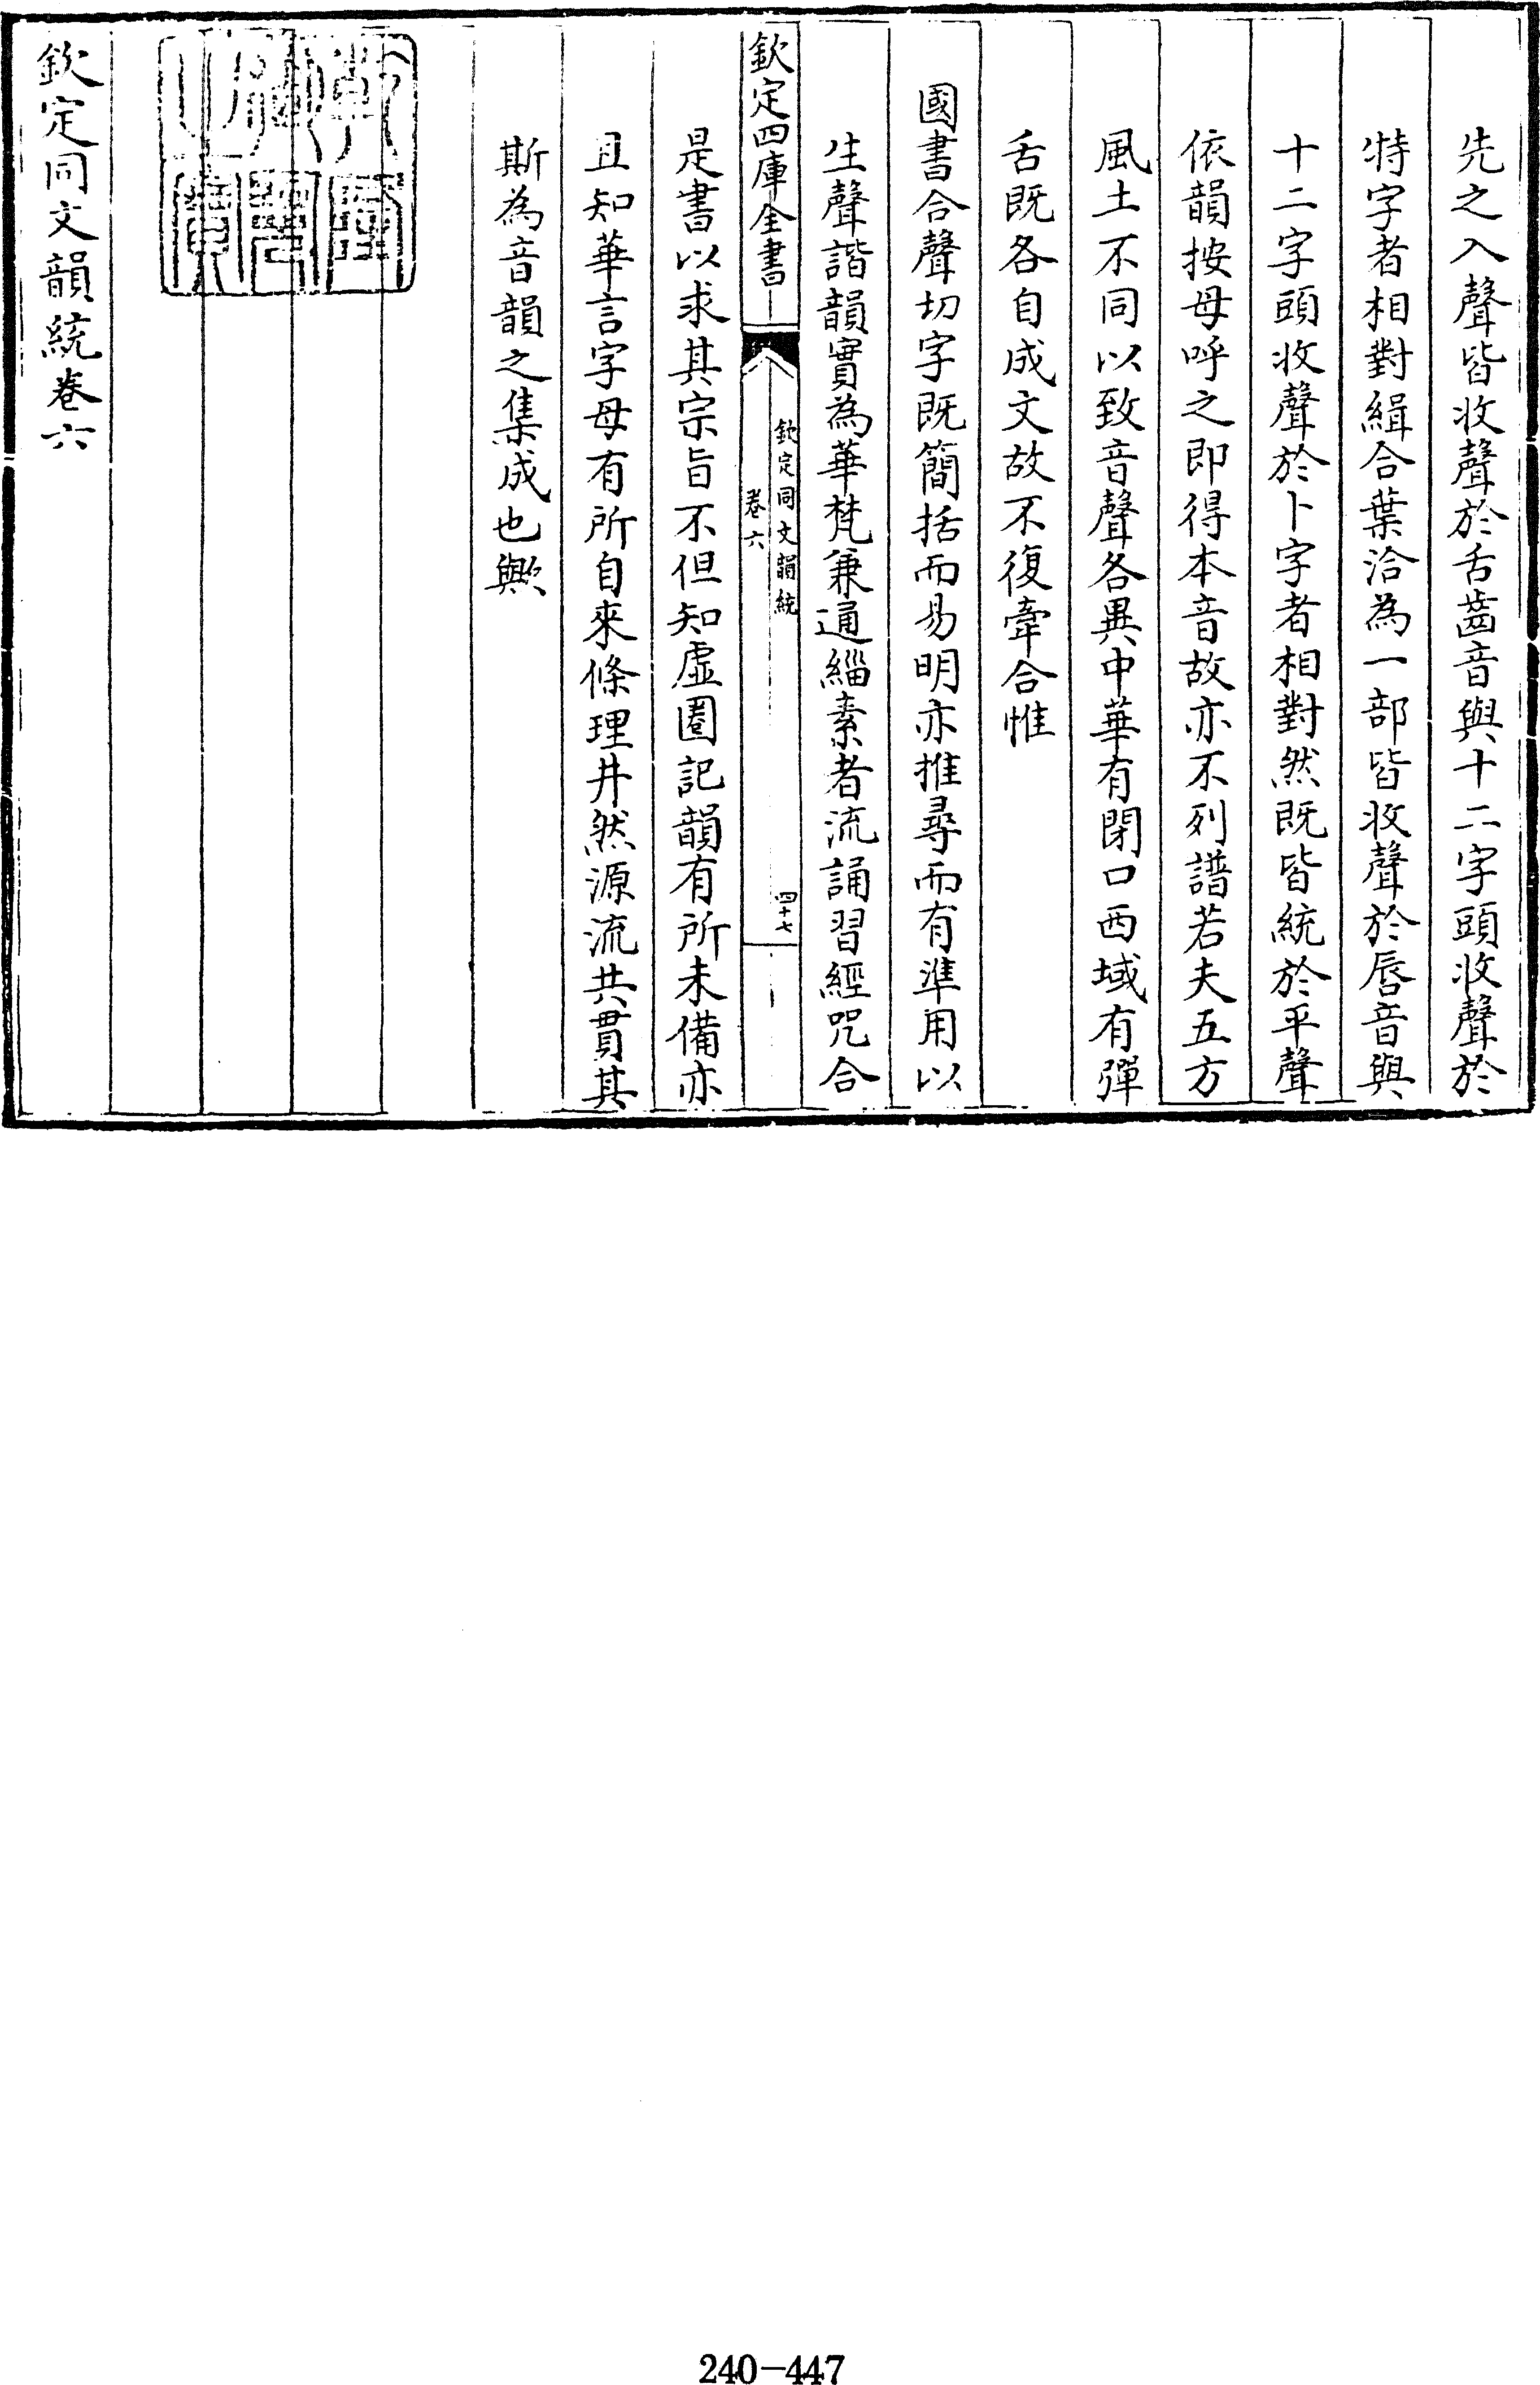 先之入聲皆收聲於舌齒音與十二字頭收聲於
特字者相對緝合葉洽為一部皆收聲於唇音與
十二字頭收聲於卜字者相對然既皆統於平聲
依韻按母呼之即得本音故亦不列譜若夫五方
風土不同以致音聲各異中華有閉口西域有彈
舌既各自成文故不復牽合惟
國書合聲切字既簡括而易明亦推尋而有準用以
生聲諧韻實為華梵兼通緇素者流誦習經咒合
欽定四庫全書
欽定同文韻統
卷六
四十七
是書以求其宗旨不但知虛圈記韻有所未備亦
且知華言字母有所自來條理井然源流共貫其
斯為音韻之集成也歟
欽定同文韻統卷六
240-447